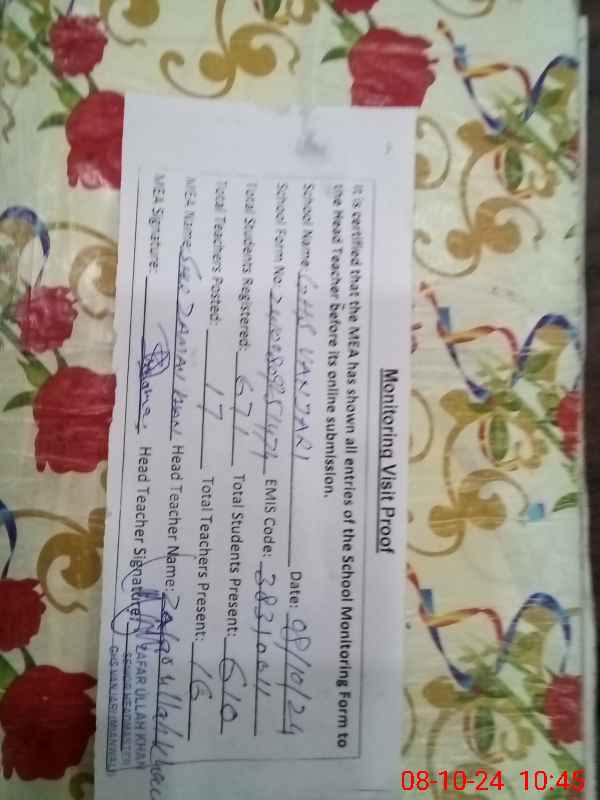 Monitoring Visit Proof
It is certified that the MEA has shown all entries of the School Monitoring Form to
the Head Teacher before its online submission.
School Name: GHS VANJARI Date: 08/10/24
School Form No. EMIS Code:
Total Students Registered: 671 Total Students Present: 610
Total Teachers Posted: 17 Total Teachers Present: 16
MEA Name: Head Teacher Name: Zafar ullah Khan
MEA Signature: Head Teacher Signature:
ZAFAR ULLAH KHAN
SENIOR HEADMASTER
08-10-24 10:45